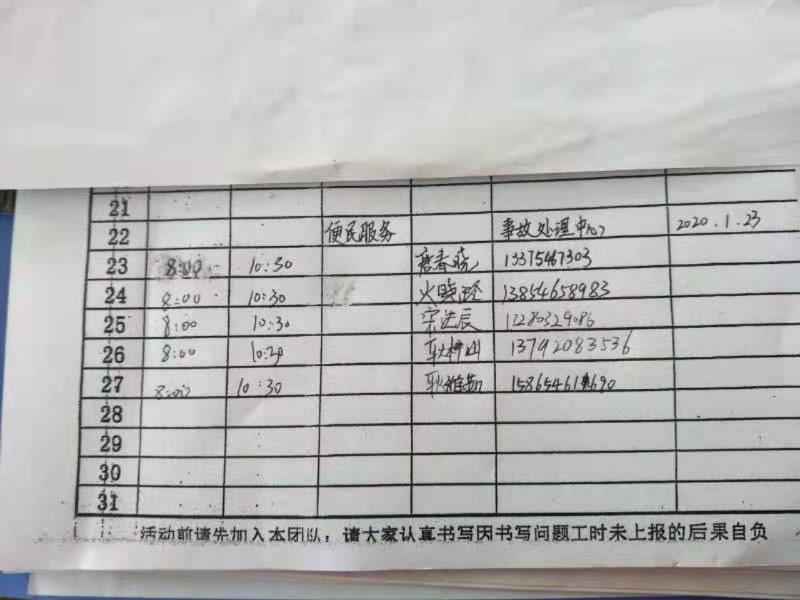 21
22 便民服务 事故处理中心 2020.1.23
23 8:00 10:30 唐春晓 15375467303
24 8:00 10:30 13854658983
25 8:00 10:30
26 8:00 13792083536
27 8:00 10:30
28
29
30
31
活动前请先加入本团队，请大家认真书写因书写问题工时未上报的后果自负